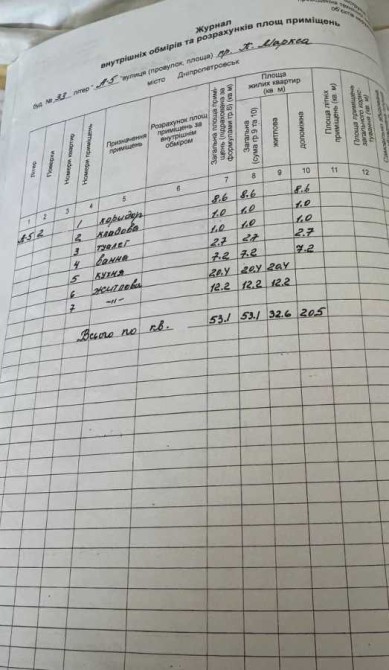 Журнал
внутрішніх обмірів та розрахунків площ приміщень
буд. № 33 літер " А-5 " вулиця (провулок, площа) пр. К. Маркса
місто Дніпропетровськ
Літер
Поверхи
Номери квартир
Номери приміщень
Призначення приміщень
Розрахунок площ приміщень за внутрішнім обміром
Загальна площа приміщень (підрахована за формулами гр.6) (кв м)
Площа жилих квартир (кв м)
Загальна (сума гр.9 та 10)
житлова
допоміжна
Площа літніх приміщень (кв. м)
Площа приміщень загального користування (кв. м)
1 2 3 4 5 6 7 8 9 10 11 12
А-5 2 1 коридор 8.6 8.6 8.6
2 кладова 1.0 1.0 1.0
3 туалет 1.0 1.0 1.0
4 ванна 2.7 2.7 2.7
5 кухня 7.2 7.2 7.2
6 житлова 20.4 20.4 20.4
7 -"- 12.2 12.2 12.2
Всього по кв. 53.1 53.1 32.6 20.5